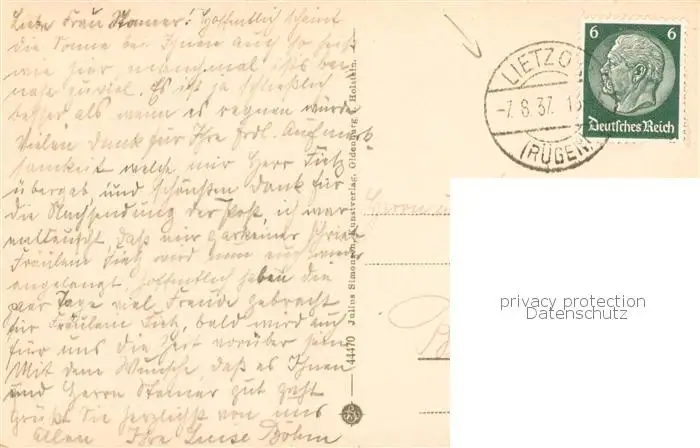 Liebe Frau Stamer! Hoffentlich scheint
die Sonne bei Ihnen auch so heiß
wie hier, manchmal ists bei-
nahe zuviel. Es ist ja schließlich
besser als wenn es regnen würde
Vielen Dank für Ihre frdl. Aufmerk
samkeit welche mir Herr Tietz
übergab und schönsten Dank für
die Nachsendung der Post, ich war
enttäuscht, daß mir garkeiner
Fräulein Tietz wird nun auch
angelangt, hoffentlich haben die
paar Tage viel Freude gebracht
für Fräulein Tietz, bald wird auch
für uns die Zeit vorüber sein
Mit dem Wunsche, daß es Ihnen
und Herrn Stamer gut geht
Grüßt Sie herzlichst von uns
Allen Ihre Luise Böhm
44470 Julius Simonsen, Kunstverlag, Oldenburg i. Holstein.
LIETZOW
-7.8.37. 18
(RÜGEN)
6 6
Deutsches Reich
privacy protection
Datenschutz